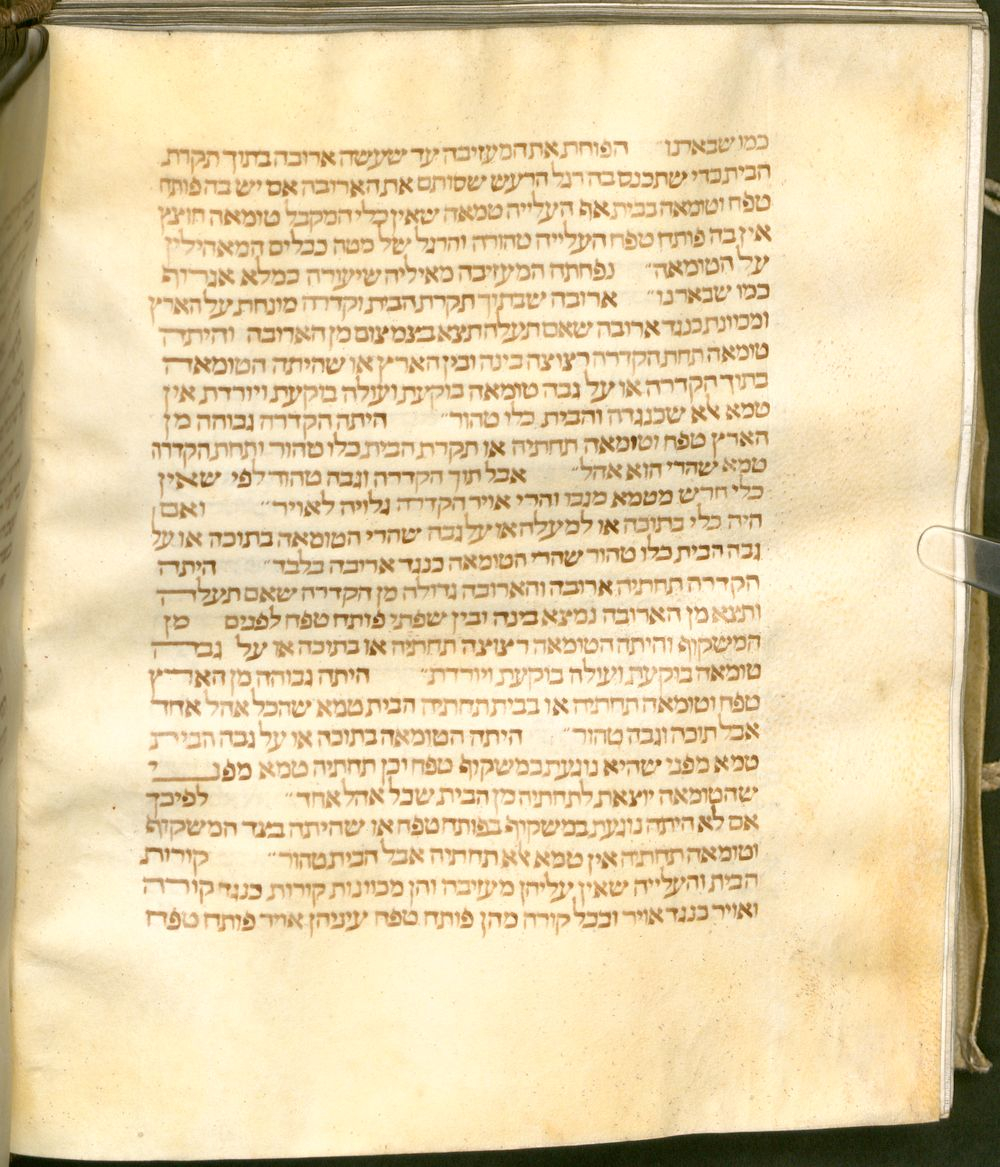 כמו שבארנו״ הפוחת את המעזיבה עד שעשה ארובה בתוך תקרת
הבית כדי שתכנס בה רגל הרעש שסותם את הארובה אם יש בה פותח
טפח וטומאה בבית אף העלייה טמאה שאין כלי המקבל טומאה חוצץ
אין בה פותח טפח העלייה טהורה והרגל של מטה ככלים המאהילין
על הטומאה״ נפחתה המעזיבה מאיליה שיעורה כמלא אגרוף
כמו שבארנו״ ארובה שבתוך תקרת הבית וקדרה מונחת על הארץ
ומכוונת כנגד ארובה שאם תעלה תצא בצמצום מן הארובה והיתה
טומאה תחת הקדרה רצוצה בינה ובין הארץ או שהיתה הטומאה
בתוך הקדרה או על גבה טומאה בוקעת ועולה בוקעת ויורדת אין
טמא אלא שכנגדה והבית כלו טהור״ היתה הקדרה גבוהה מן
הארץ טפח וטומאה תחתיה או תקרת הבית כלו טהור ותחת הקדרה
טמא שהרי הוא אהל״ אבל תוך הקדרה וגבה טהור לפי שאין
כלי חרש מטמא מגבו והרי אויר הקדרה גלויה לאויר״ ואם
היה כלי בתוכה או למעלה או על גבה שהרי הטומאה בתוכה או על
גבה הבית כלו טהור שהרי הטומאה כנגד ארובה בלבד״ היתה
הקדרה תחתיה ארובה והארובה גדולה מן הקדרה שאם תעלה
ותצא מן הארובה נמצא בינה ובין שפתי פותח טפח לפנים מן
המשקוף והיתה הטומאה רצוצה תחתיה או בתוכה או על גבה
טומאה בוקעת ועולה בוקעת ויורדת״ היתה גבוהה מן הארץ
טפח וטומאה תחתיה או בבית תחתיה הבית טמא שהכל אהל אחד
אבל תוכה וגבה טהור״ היתה הטומאה בתוכה או על גבה הבית
טמא מפני שהיא נוגעת במשקוף טפח יכן תחתיה טמא מפנ י
שהטומאה יוצאת לתחתיה מן הבית שכל אהל אחד״ לפיכך
אם לא היתה נוגעת במשקוף בפותח טפח או שהיתה בצד המשקוף
וטומאה תחתיה אין טמא אלא תחתיה אבל הבית טהור״ קורות
הבית והעלייה שאין עליהן מעזיבה והן מכוונות קורות כנגד קורה
ואויר כנגד אויר ובכל קורה מהן פותח טפח עיניהן אויר פותח טפח